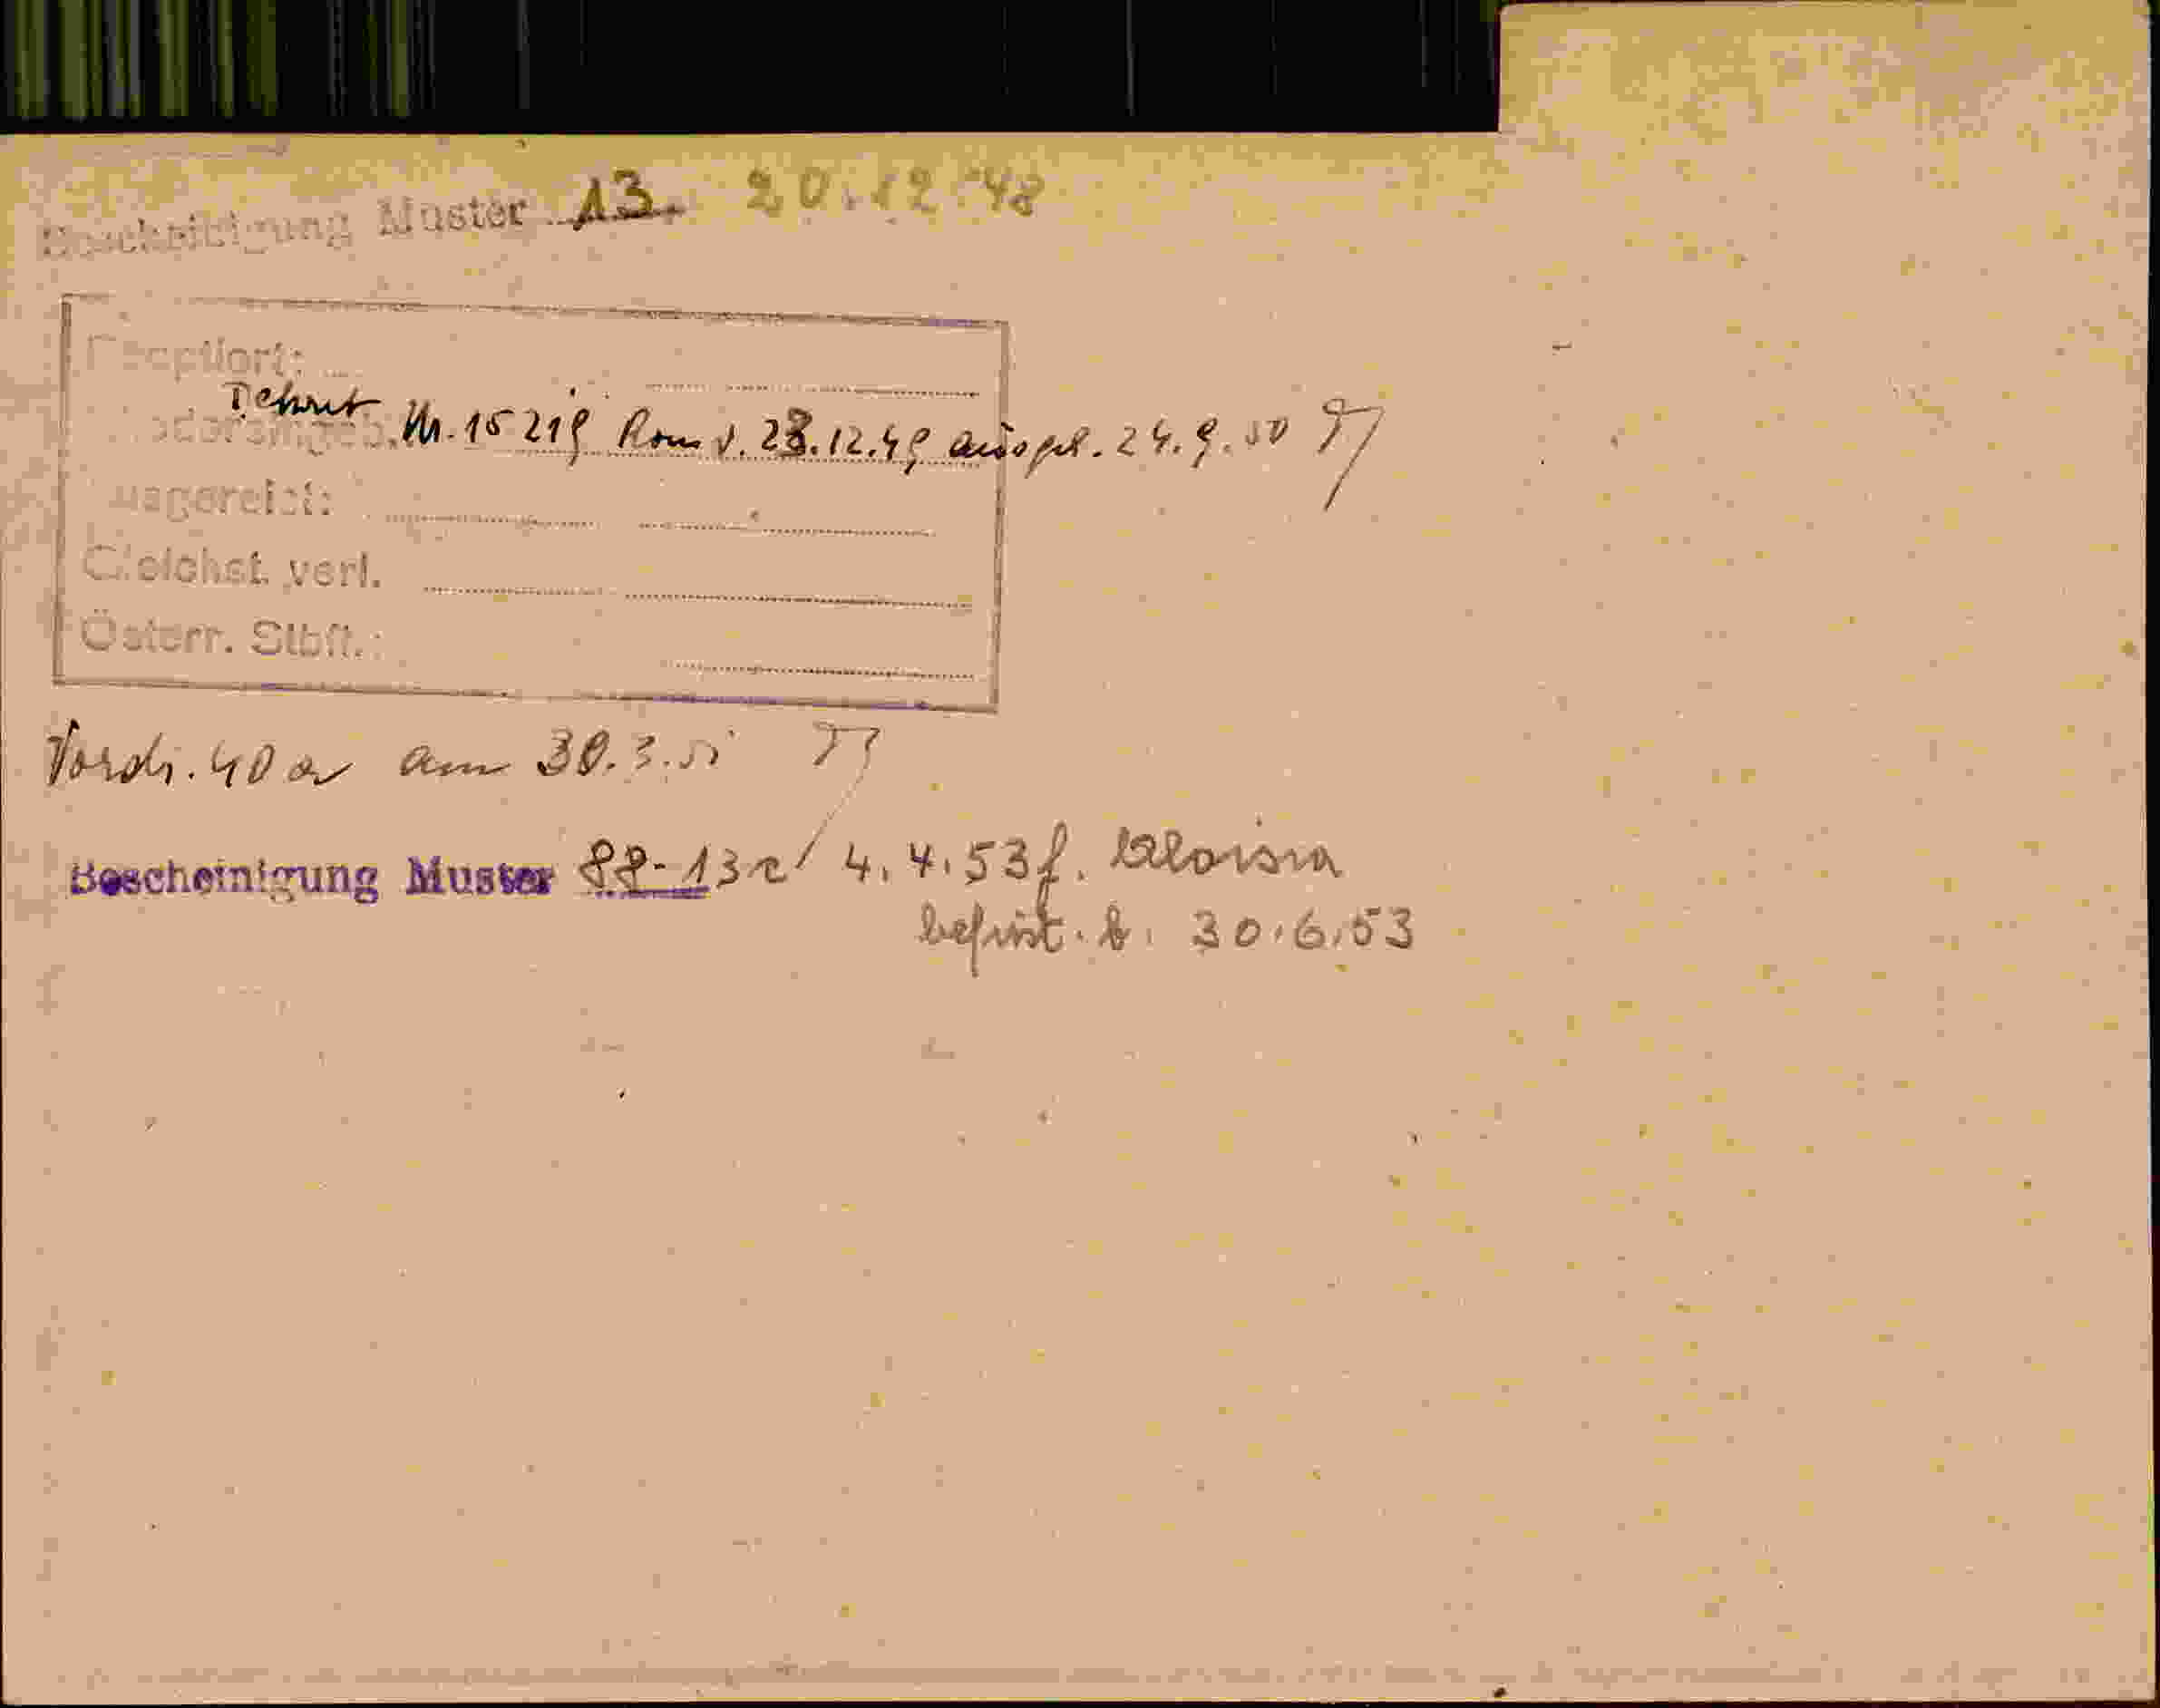 Bescheinigung Muster 13. 20.12.48
Reoptiert:
Dekret
Wiedereingeb. Nr. 15219 Rom v. 23.12.49 ausgef. 24.9.50
Ausgereist:
Gleichst. verl.
Österr. Stbft.:
Vordr. 40a am 30.3.51
Bescheinigung Muster 88-13a 4.4.53 f. Aloisia
befrist. b. 30.6.53